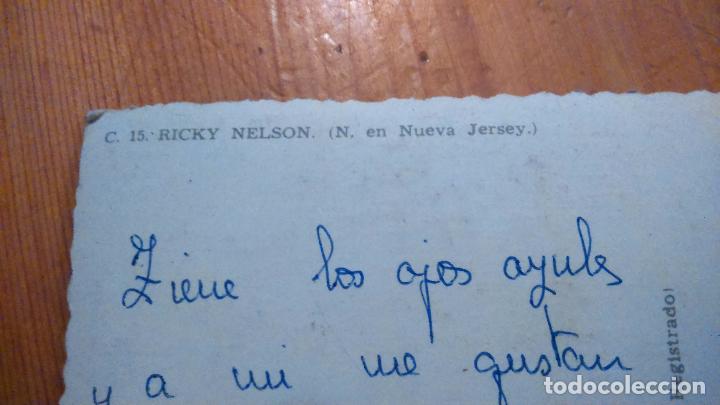 C. 15. RICKY NELSON. (N. en Nueva Jersey.)
Tiene los ojos azules
y a mi me gustan
Registrado)
todocoleccion
todocoleccion.net